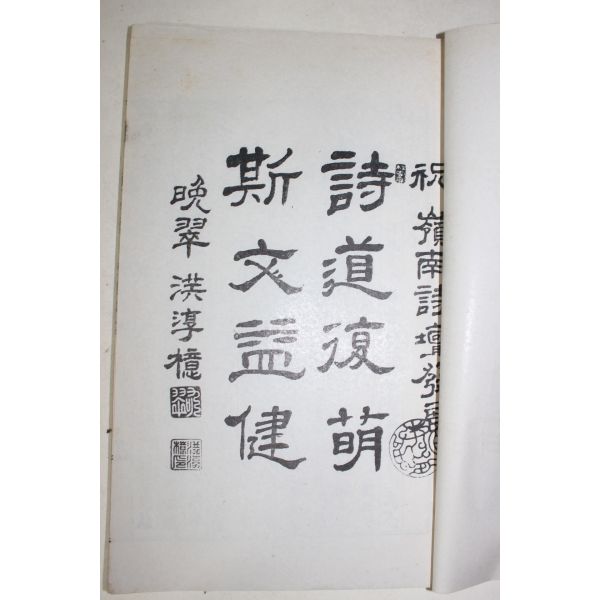 祝 嶺南詩壇發展
詩道復萌
斯文益健
晩翠 洪淳檍